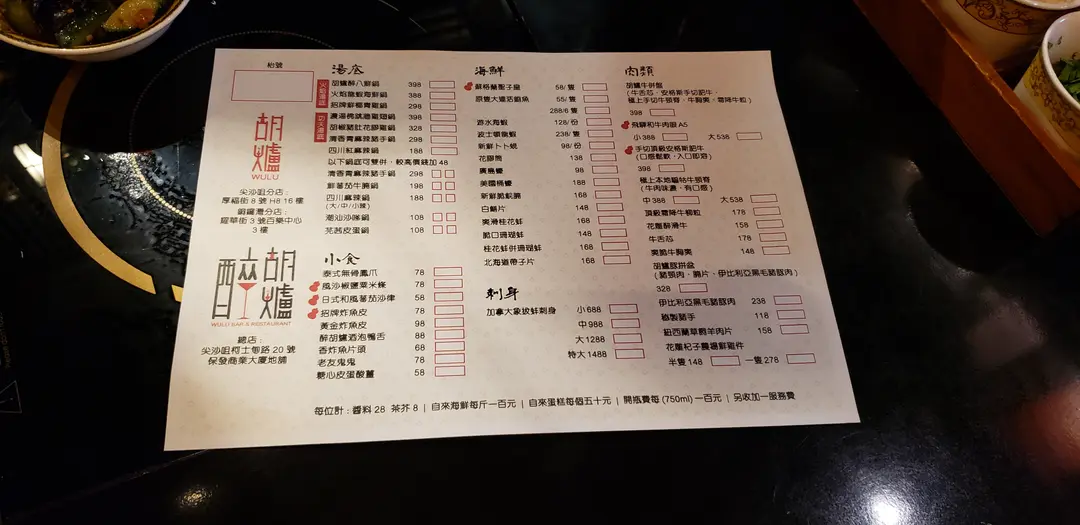 枱號
胡爐
WULU
尖沙咀分店:
厚福街 8 號 H8 16 樓
銅鑼灣分店:
耀華街 3 號百樂中心
3 樓
醉胡爐
WULU BAR & RESTAURANT
總店:
尖沙咀柯士甸路 20 號
保發商業大廈地舖
湯底
胡爐醉八鮮鍋 398
火焰龍蝦海鮮鍋 388
招牌鮮椰青雞鍋 298
濃湯佛跳牆雞煲鍋 398
胡椒豬肚花膠雞鍋 328
清香青麻辣豬手鍋 298
四川紅麻辣鍋 188
以下鍋底可雙併,較高價錢加 48
清香青麻辣豬手鍋 298
鮮蕃茄牛脷鍋 198
四川麻辣鍋 188
(大/中/小辣)
潮汕沙嗲鍋 108
芫茜皮蛋鍋 108
小食
泰式無骨鳳爪 78
風沙椒鹽粟米條 78
日式和風蕃茄沙律 58
招牌炸魚皮 78
黃金炸魚皮 98
醉胡爐酒泡鴨舌 88
香炸魚片頭 68
老友鬼鬼 78
糖心皮蛋酸薑 58
海鮮
蘇格蘭聖子皇 58/隻
原隻大連活鮑魚 55/隻
288/6 隻
游水海蝦 128/份
波士頓龍蝦 238/隻
新鮮卜卜蜆 98/份
花膠筒 138
廣島蠔 98
美國桶蠔 188
新鮮脆鯇腩 168
白鱔片 148
爽滑桂花蚌 168
脆口珊瑚蚌 148
桂花蚌併珊瑚蚌 168
北海道帶子片 168
刺身
加拿大象拔蚌刺身 小 688
中 988
大 1288
特大 1488
肉類
胡爐牛併盤
(牛舌芯、安格斯手切肥牛、
極上手切牛頸脊、牛胸爽、霜降牛粒)
398
飛驒和牛肉眼 A5
小 388 大 538
手切頂級安格斯肥牛
(口感鬆軟,入口即溶)
398
極上本地騸牯牛頸脊
(牛肉味濃,有口感)
中 388 大 538
頂級霜降牛柳粒 178
花雕醉滑牛 158
牛舌芯 178
爽脆牛胸爽 148
(豬頸肉、腸片、伊比利亞黑毛豬豚肉)
328
伊比利亞黑毛豬豚肉 238
秘製豬手 118
紐西蘭草飼羊肉片 158
花雕杞子農場鮮雞件
半隻 148 一隻 278
每位計 : 醬料 28 茶芥 8 | 自來海鮮每斤一百元 | 自來蛋糕每個五十元 | 開瓶費每 (750ml) 一百元 | 另收加一服務費